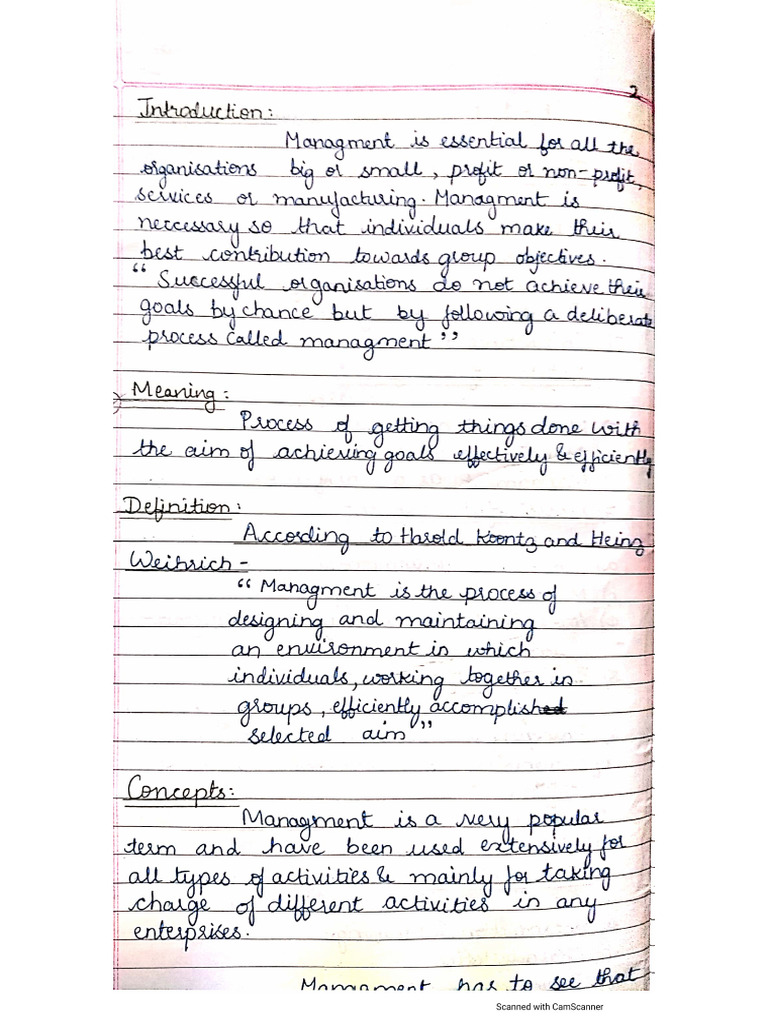 2
Introduction:
Managment is essential for all the
organisations big or small, profit or non-profit,
services or manufacturing. Managment is
neccessary so that individuals make their
best contribution towards group objectives.
“ Successful organisations do not achieve their
goals by chance but by following a deliberate
process called managment ”
Meaning:
Process of getting things done with
the aim of achieving goals effectively & efficiently
Definition:
According to Harold Koontz and Heinz
Weihrich -
“ Managment is the process of
designing and maintaining
an environment in which
individuals, working together in
groups, efficiently accomplished
selected aim ”
Concepts:
Managment is a very popular
term and have been used extensively for
all types of activities & mainly for taking
charge of different activities in any
enterprises.
Managment has to see that
Scanned with CamScanner